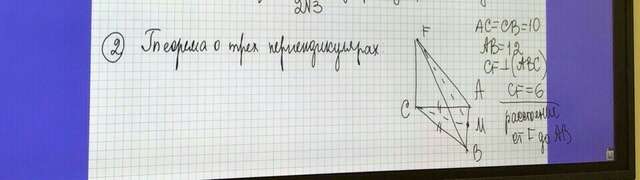 2N3
② Теорема о трех перпендикулярах
F
C
A
M
B
AC=CB=10
AB=12
CF⊥(ABC)
CF=6
расстояние
от F до AB